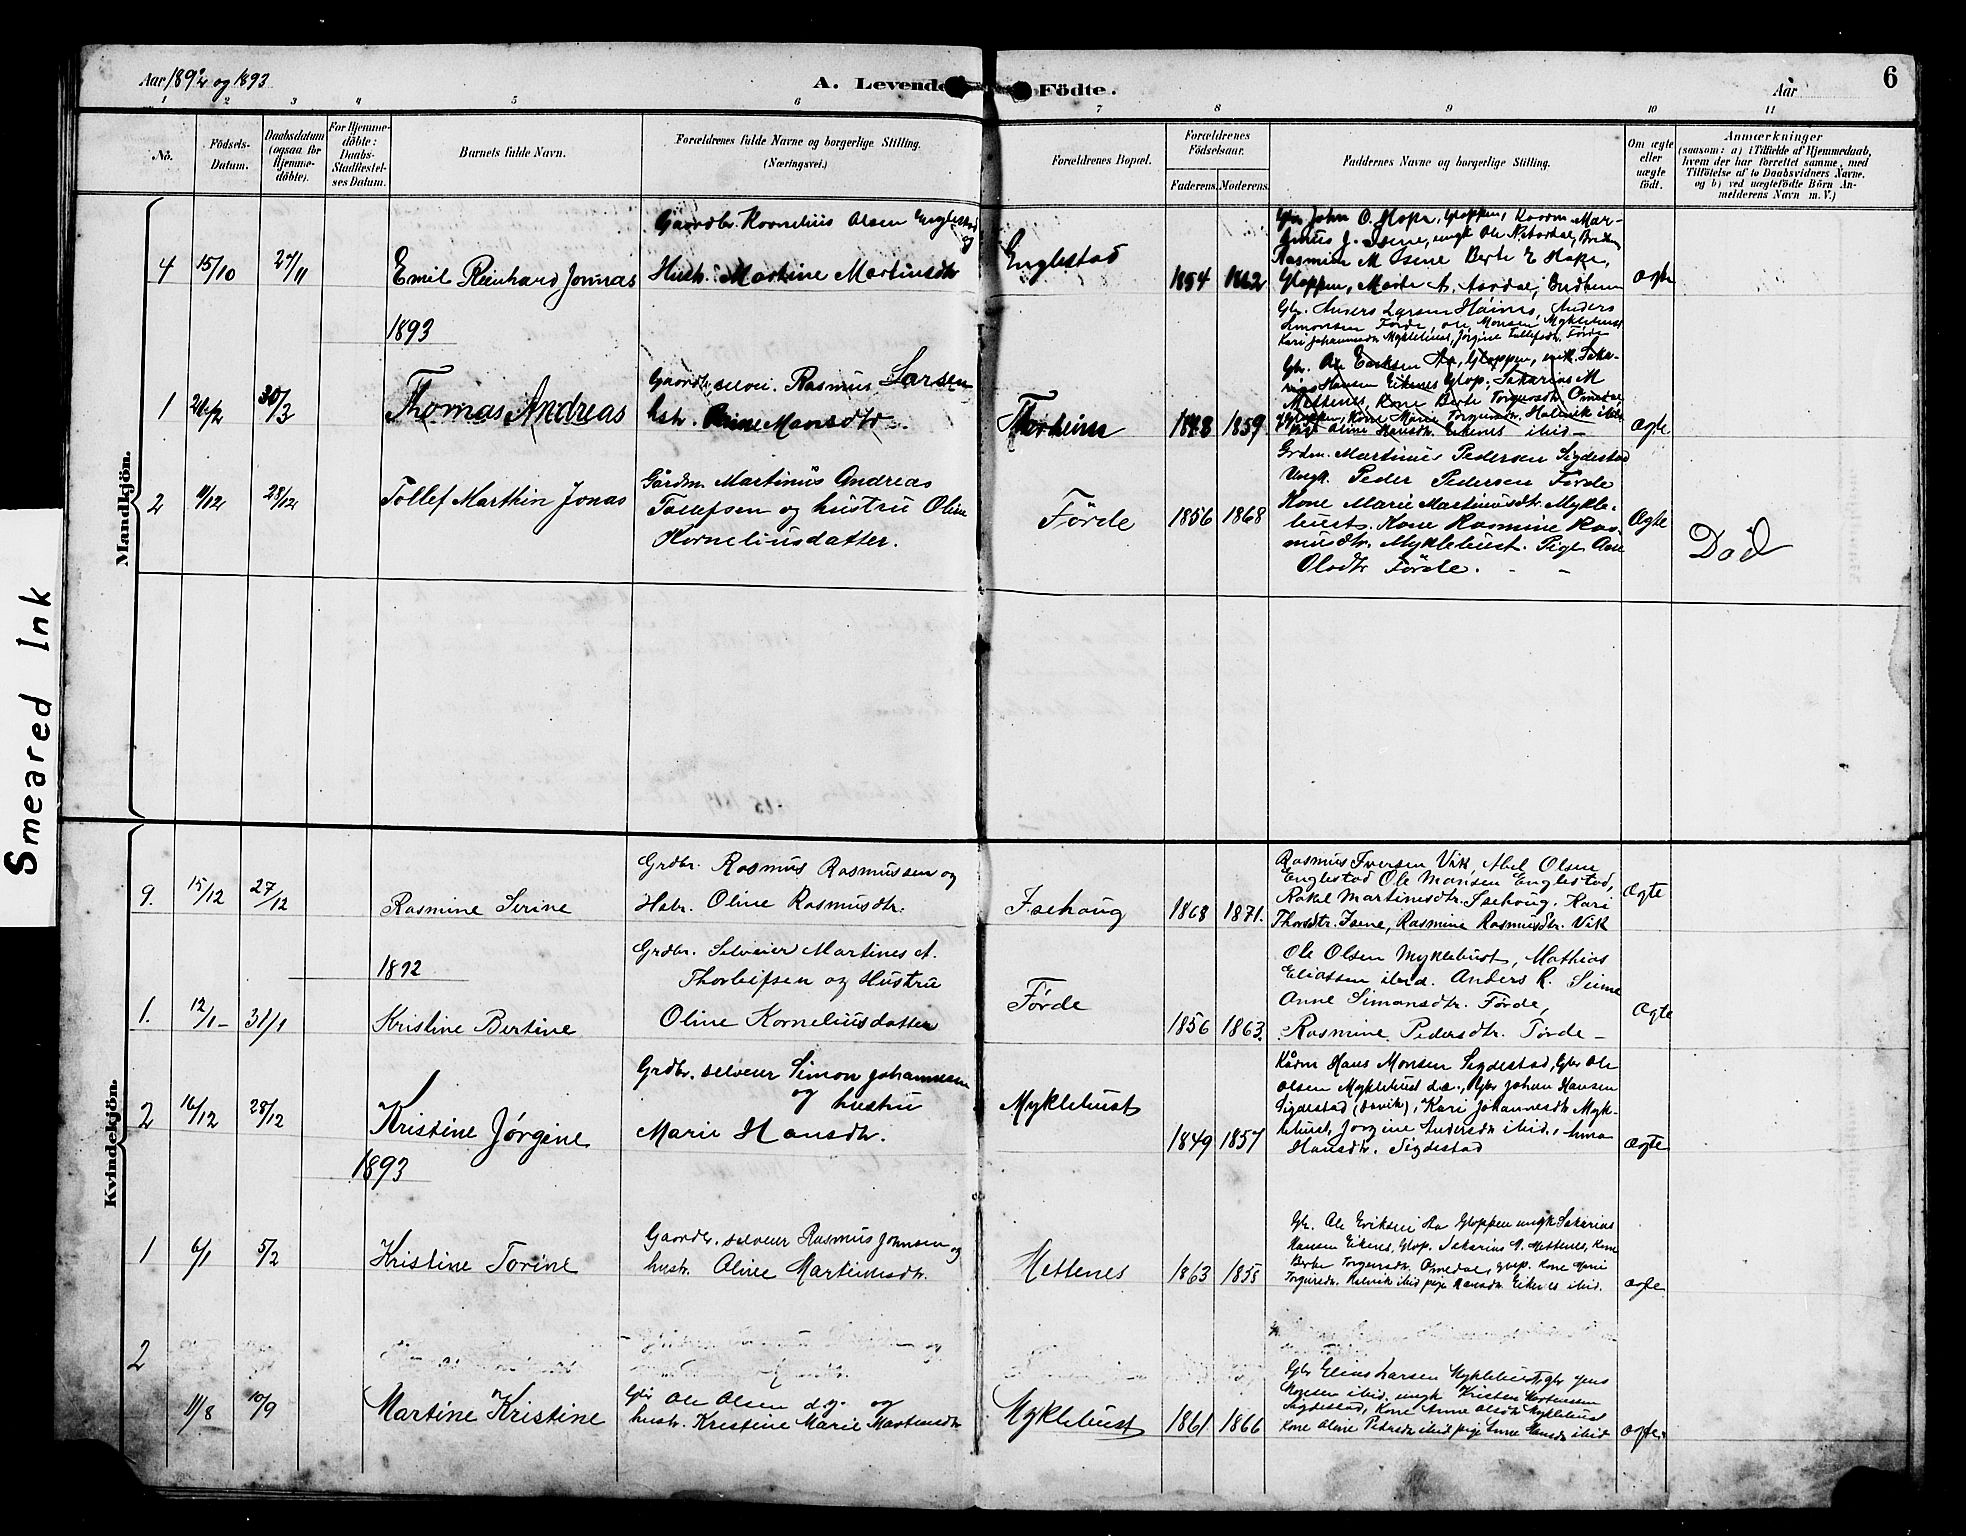 Aar 1892 og 1893
A. Levende Födte.
Aar
6
1 2 3 4 5 6 7 8 9 10 11
No.
Födsels-
Datum.
Daabsdatum
(ogsaa for
Hjemme-
döbte).
For Hjemme-
döbte:
Daabs-
Stadfæstel-
ses Datum.
Barnets fulde Navn.
Forældrenes fulde Navne og borgerlige Stilling.
(Næringsvei.)
Forældrenes Bopæl.
Forældrenes
Födselsaar.
Faderens. Moderens.
Faddernes Navne og borgerlige Stilling.
Om ægte
eller
uægte
födt.
Anmærkninger
(saasom: a) i Tilfælde af Hjemmedaab,
hvem der har forrettet samme, med
Tilföielse af to Daabsvidners Navne,
og b) ved uægtefödte Börn An-
melderens Navn m. V.)
Mandkjön.
4 15/10 27/11 Emil Reinhard Jonas
Gaardbr. Kornelius Olsen Englestad og
Hustr. Martine Martinsdtr
Englestad
1854 1862
Gbr John O. Hope, Gloppen,
Rasmus M Isene Berte E Hope,
Gloppen, Marte A. Aardal,
Ægte
1893
Gbr. Anders Larsen Höines, Anders
Simonsen Förde, Ole Monsen Myklebust
Kari Johannesdtr Myklebust, Jörgine Tollefsdtr. Förde
1 26/2 30/3 Thomas Andreas
Gaardbr. selvei. Rasmus Larsen
hstr. Anne Monsdtr.
Thorheim
1848 1859
Gbr. Ole Eriksen Aa, Gloppen, unk. Saka-
rias Hansen Eikenes Glop. Sakarias M
Mettenes, Kone Berte Torgersdtr Ömedal,
Gloppen, Kone Marie Torgersdtr. Holmik ibid
Oline Hansdtr. Eikenes ibid -
Ægte
2 11/12 28/12 Tollef Marthin Jonas
Gårdm. Martinus Andreas
Tollefsen og hustru Oline
Korneliusdatter.
Förde
1856 1868
Grdm. Martinus Pedersen Sigdestad
Ungk. Peder Pedersen Förde
Kone Marie Martinusdtr. Mykle-
bust. Kone Rasmine Ras-
musdtr. Myklebust. Pige Ane
Olsdtr Förde. - -
Ægte
Död
Kvindekjön.
9. 15/12 27/12 Rasmine Serine
Grdbr. Rasmus Rasmussen og
Hstr. Oline Rasmusdtr.
Isehoug
1868 1871.
Rasmus Iversen Vik, Abel Olsen
Englestad Ole Monsen Englestad,
Rakel Martinesdtr. Isehoug. Kari
Thorsdtr. Isene, Rasmine Rasmusdtr. Vik
Ægte
1892
1. 12/1- 31/1 Kristine Bertine
Grdbr. Selveier Martines A.
Thorleifsen og Hustru
Oline Korneliusdatter
Förde
1856 1863.
Ole Olsen Myklebust, Mathias
Eliassen ibid. Anders R. Seime
Anne Simonsdtr. Förde,
Rasmine Pedersdtr. Förde -
Ægte
2 16/12 28/12 Kristine Jørgine
Grdbr. selveier Simon Johannesen
og hustru
Marie Hansdtr.
Myklebust
1849 1857
Kårm Hans Monsen Sigdestad, Gbr Ole
Olsen Myklebust d.æ., Gbr Johan Hansen
Sigdestad (Davik), Kari Johannesdtr Myk-
lebust, Jorgine Andersdtr ibid., Anna
Hansdtr. Sigdestad
Ægte
1893
1 6/1 5/2 Kristine Torine
Gaardbr. selveier Rasmus Johnsen og
hustr. Oline Martinusdtr.
Mettenes
1863 1855
Gbr. Ole Eriksen Aa Gloppen ungk Sakarias
Hansen Eikenes, Glop. Sakarias M. Mettenes, Kone
Berte Torgersdtr. Ömedal, glop. Kone Marie
Torgersdtr. Holmik ibid pige Hansdtr Eikenes ibid.
Ægte
2
11/8 10/9 Martine Kristine
Gbr Ole Olsen d.y. og
hustr. Kristine Marie Martensdtr
Myklebust
1861 1866
Gbr Elias Larsen Myklebust, gbr Jens
Monsen ibid, ungk Kristen Mortensen
Sigdestad, Kone Anne Olsdtr Myklebust
Kone Oline Pedersdtr ibid pige Anne Hansdtr ibid
Ægte.
Smeared Ink